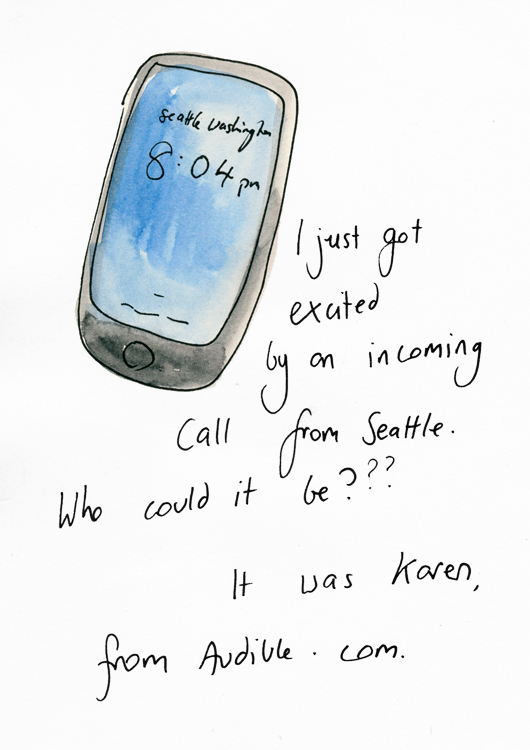 seattle washington
8:04 pm
I just got
excited
by an incoming
Call from Seattle.
Who could it be???
It was Karen,
from Audible.com.